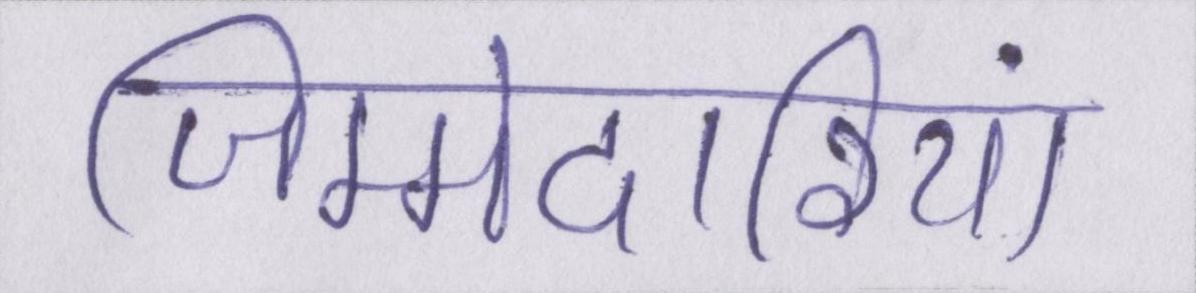 जिम्मेदारियां